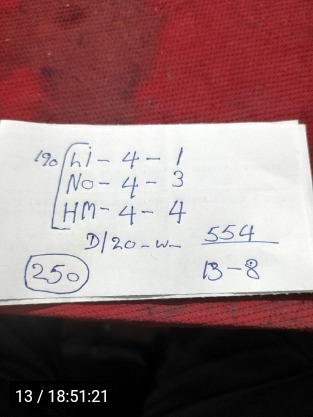 190 [ Li - 4 - 1
No - 4 - 3
HM - 4 - 4
D/20 - w - 554
250
13 - 8
13 / 18:51:21